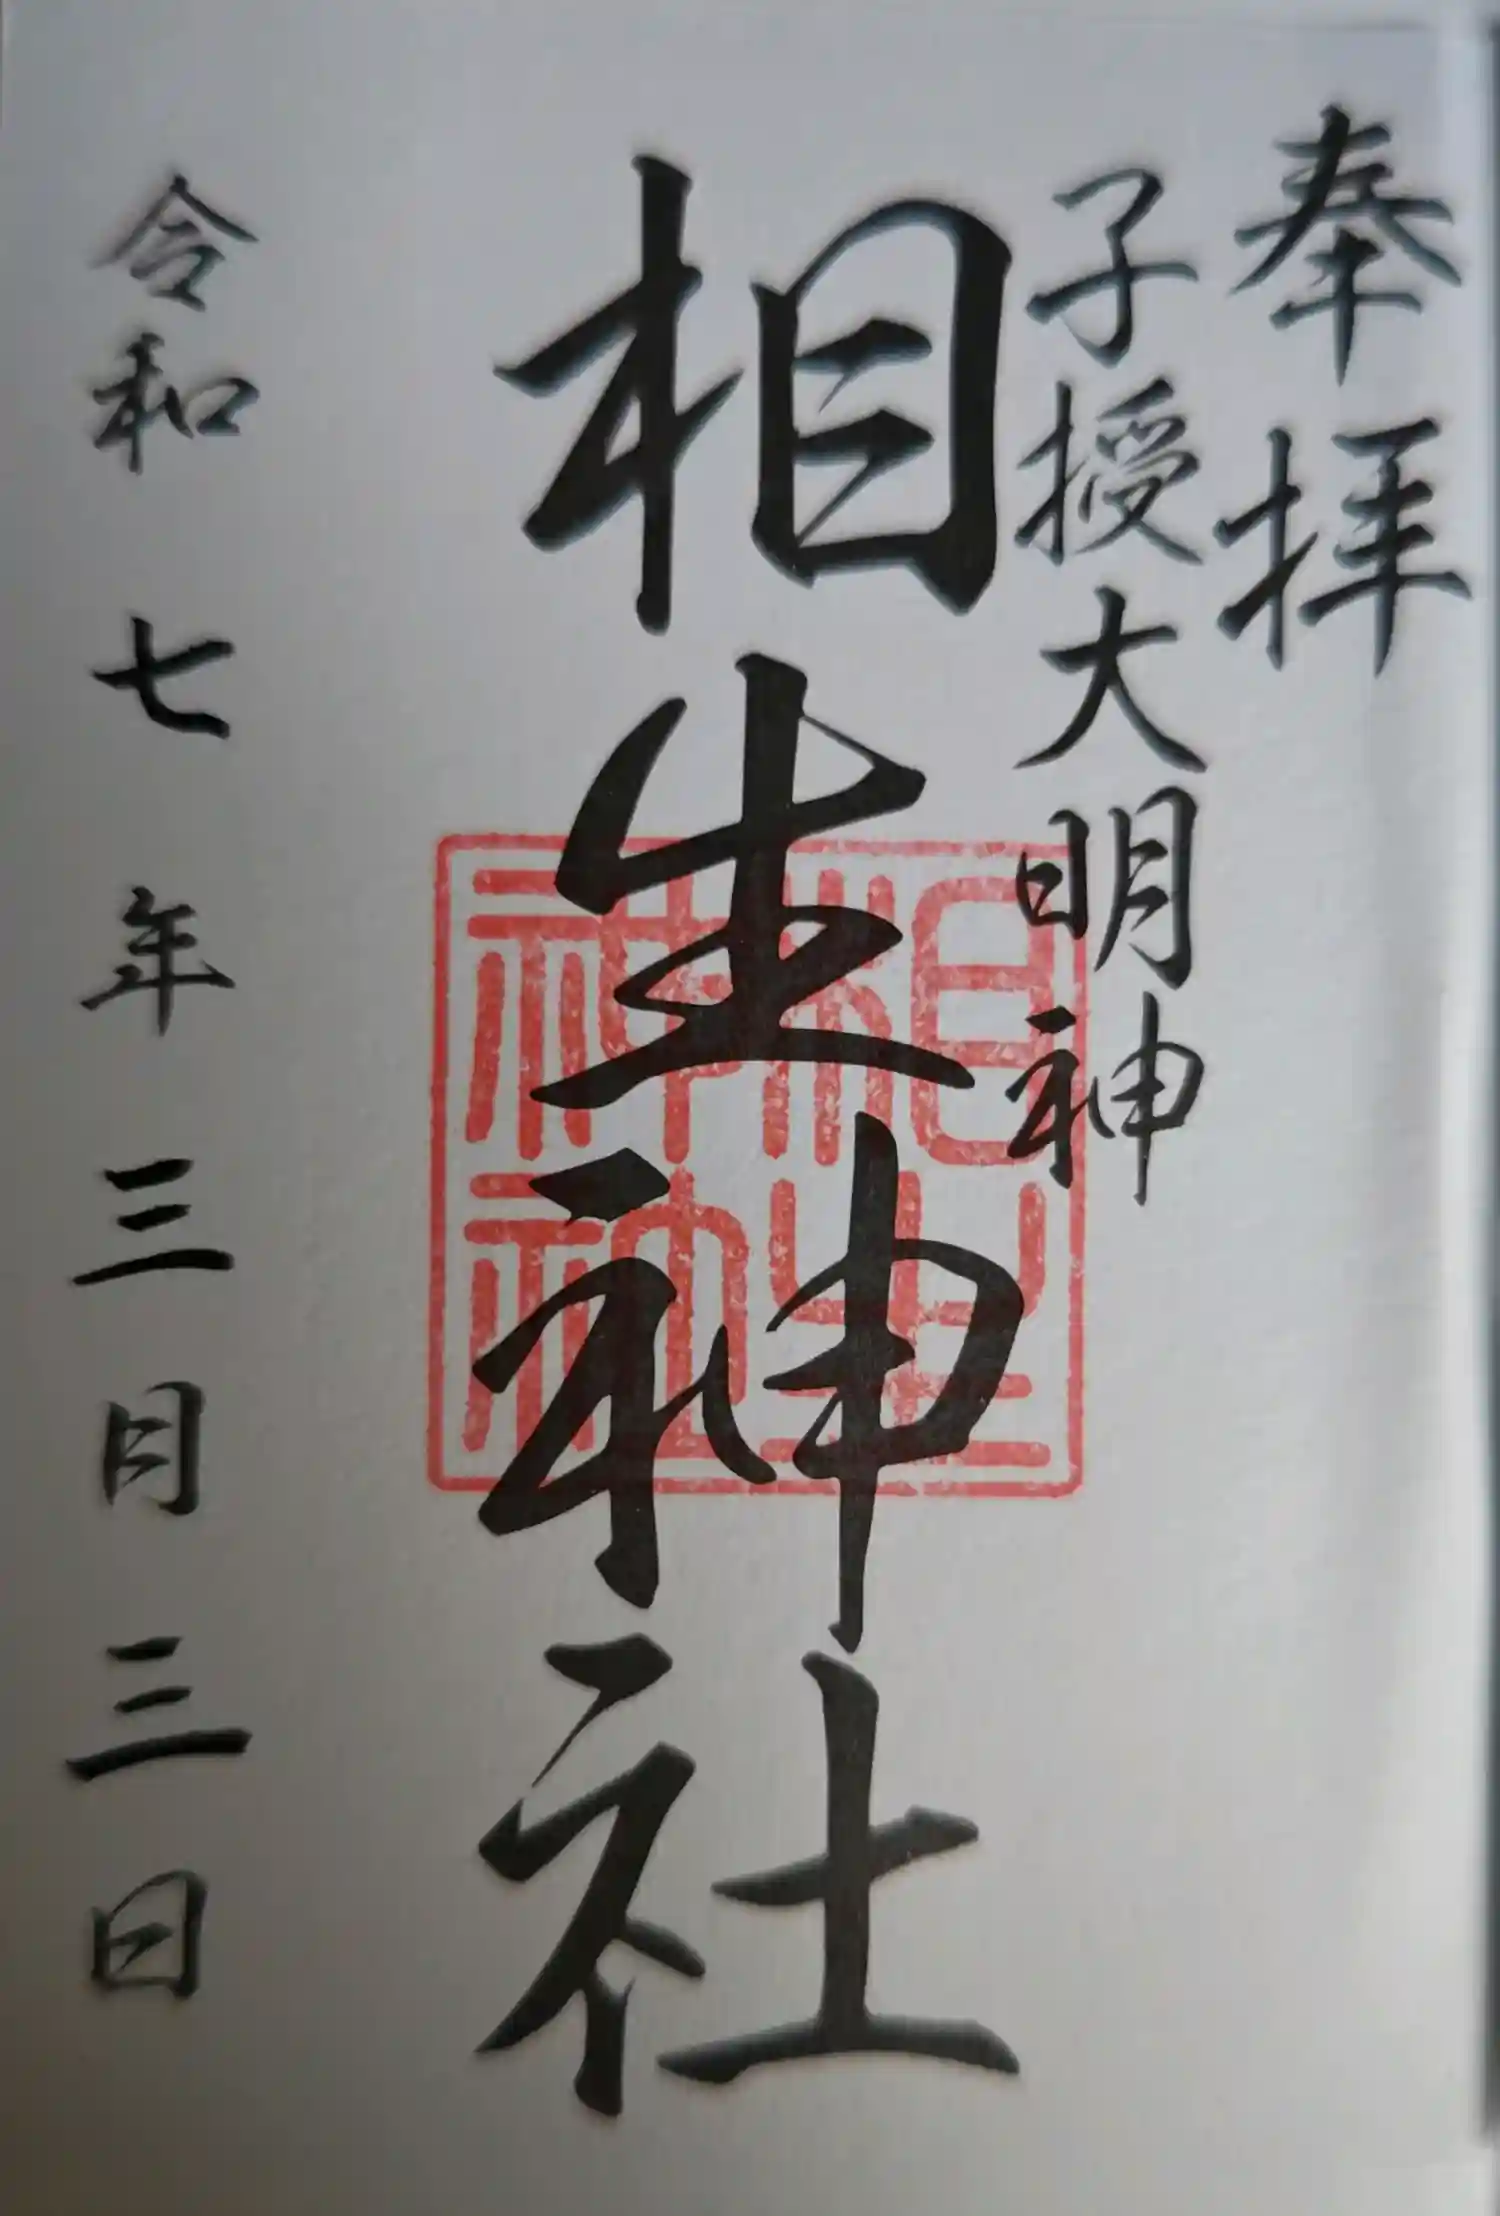 奉拝
子授大明神
相生神社
相生
神社
令和七年三月三日